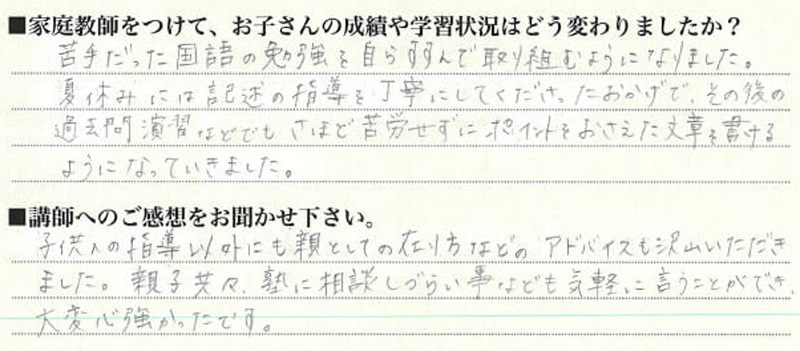 ■家庭教師をつけて、お子さんの成績や学習状況はどう変わりましたか？
苦手だった国語の勉強を自らすすんで取り組むようになりました。
夏休みには記述の指導を丁寧にしてくださったおかげで、その後の
過去問演習などでもさほど苦労せずにポイントをおさえた文章を書ける
ようになっていきました。
■講師へのご感想をお聞かせ下さい。
子供への指導以外にも親としての在り方などのアドバイスも沢山いただき
ました。親子共々、塾に相談しづらい事なども気軽に言うことができ、
大変心強かったです。